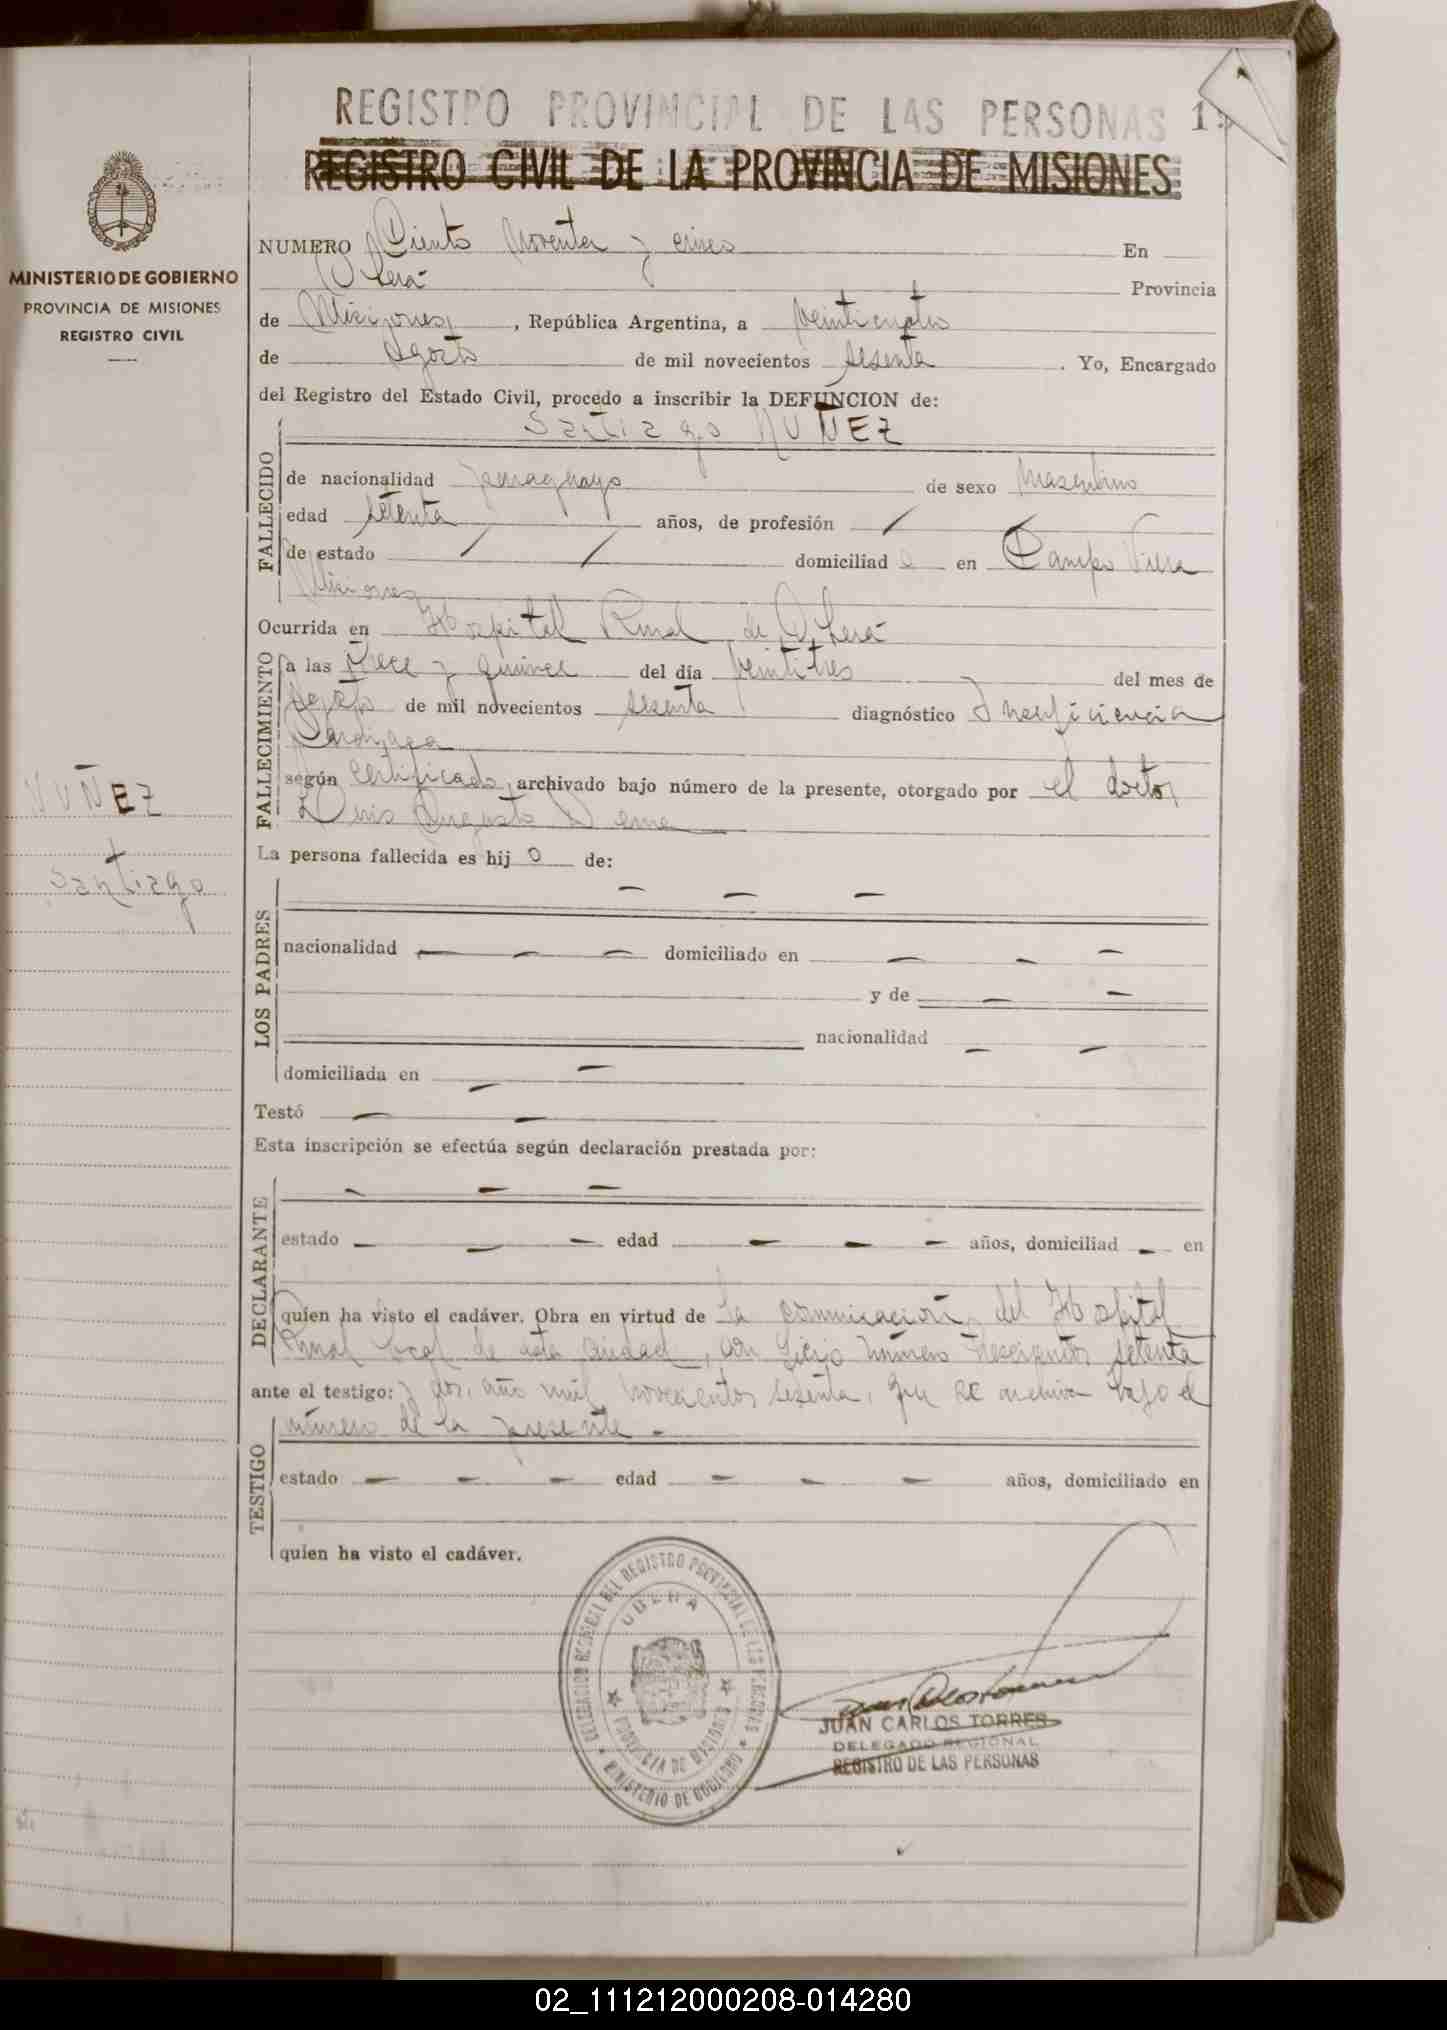 REGISTRO PROVINCIAL DE LAS PERSONAS
REGISTRO CIVIL DE LA PROVINCIA DE MISIONES
MINISTERIO DE GOBIERNO
PROVINCIA DE MISIONES
REGISTRO CIVIL
NUMERO Ciento Noventa y cinco En
Oberá Provincia
de Misiones, República Argentina, a veinticuatro
de Agosto de mil novecientos sesenta. Yo, Encargado
del Registro del Estado Civil, procedo a inscribir la DEFUNCION de:
Santiago NUÑEZ
FALLECIDO
de nacionalidad paraguayo de sexo Masculino
edad setenta años, de profesión /
de estado / / domiciliado en Campo Viera
Misiones
Ocurrida en Hospital Rural de Oberá
FALLECIMIENTO
a las trece y quince del día veintitres del mes de
Agosto de mil novecientos sesenta diagnóstico Insuficiencia
Cardiaca
según certificado archivado bajo número de la presente, otorgado por el doctor
Luis Augusto
NUÑEZ
Santiago
La persona fallecida es hijo de:
LOS PADRES
— — —
nacionalidad — — — domiciliado en — — —
y de — —
nacionalidad — —
domiciliada en — —
Testó — —
Esta inscripción se efectúa según declaración prestada por:
DECLARANTE
— — —
estado — — — edad — — — años, domiciliad — en
quien ha visto el cadáver. Obra en virtud de La comunicación del Hospital
Rural local de esta ciudad, con número trescientos setenta
ante el testigo: y dos, año mil novecientos sesenta, que se archiva bajo el
número de la presente.-
TESTIGO
estado — — — edad — — — años, domiciliado en
quien ha visto el cadáver.
DELEGACION REGIONAL DEL REGISTRO PROVINCIAL DE LAS PERSONAS
OBERA
PROVINCIA DE MISIONES
MINISTERIO DE GOBIERNO
JUAN CARLOS TORRES
DELEGADO REGIONAL
REGISTRO DE LAS PERSONAS
02_111212000208-014280